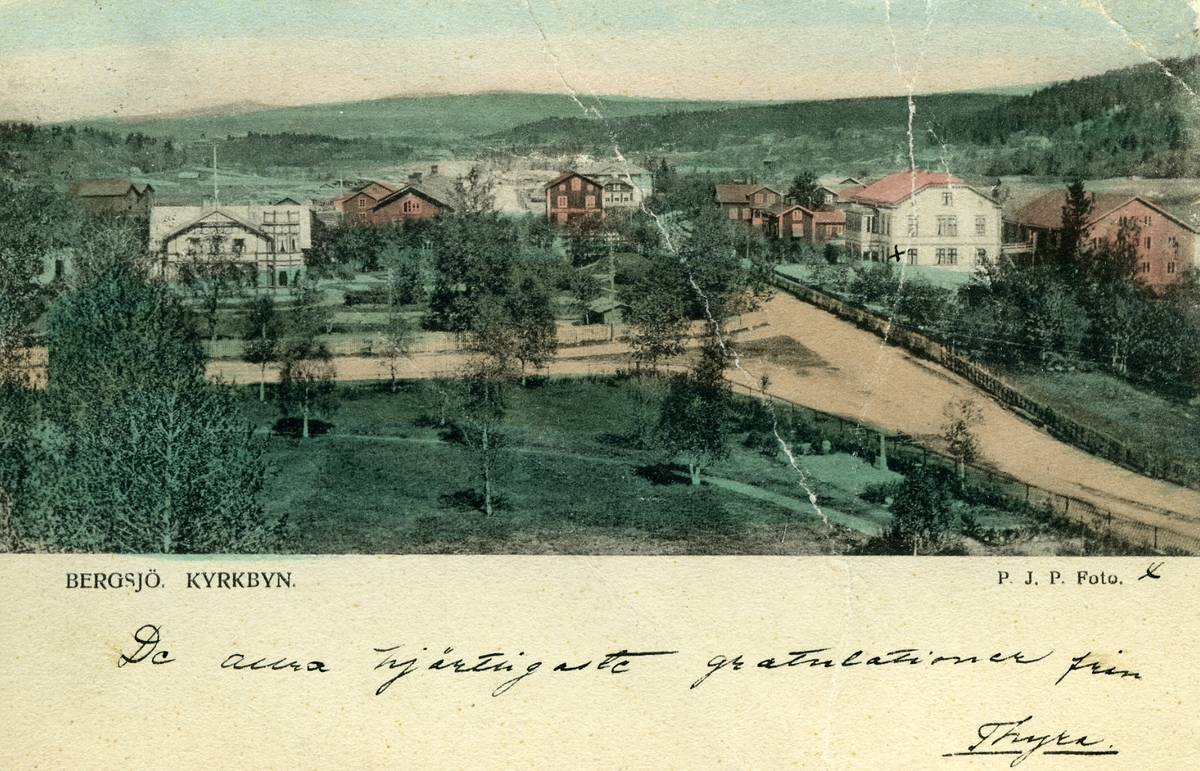 BERGSJÖ. KYRKBYN.
P. J. P. Foto. x
De allra hjärtligaste gratulationer från
Thyra.